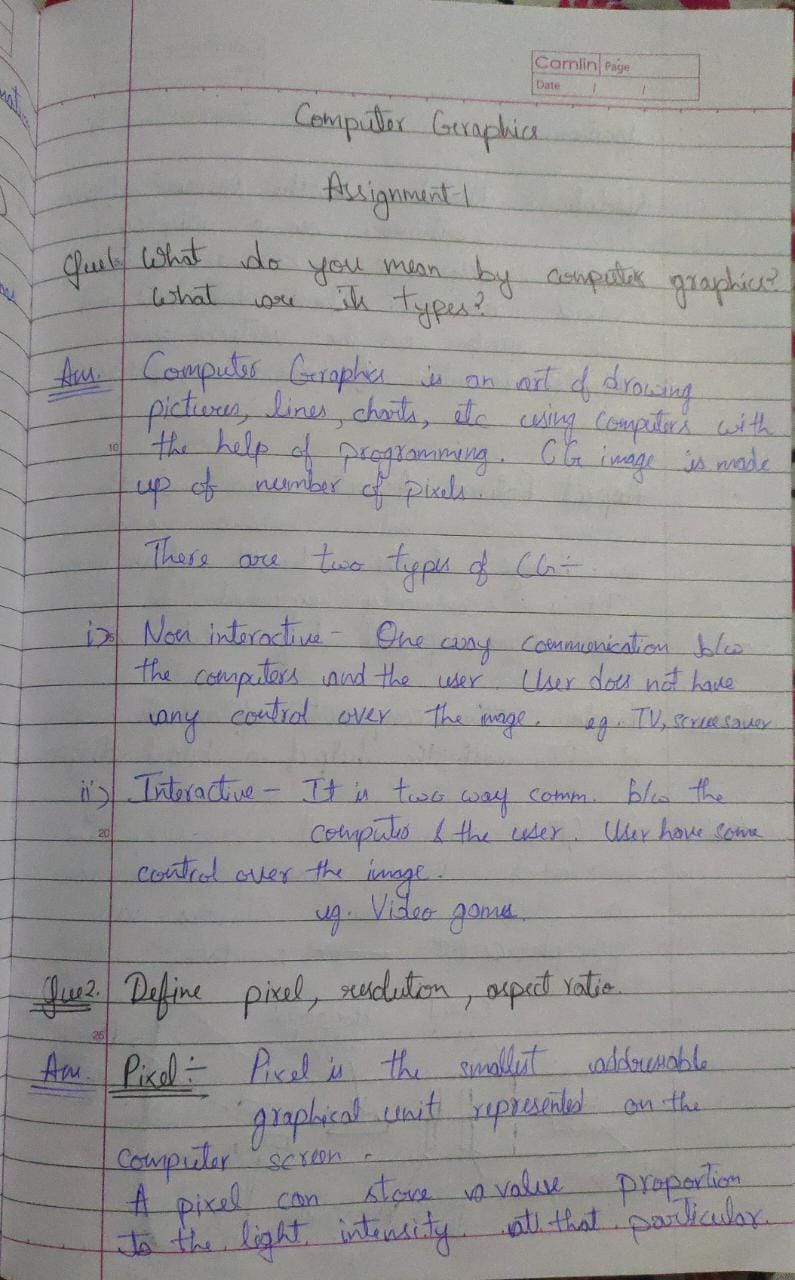 Camlin Page
Date / /
Computer Graphics
Assignment-1
Que1. What do you mean by computer graphics?
What are its types?
Ans. Computer Graphics is an art of drawing
pictures, lines, charts, etc using computers with
10 the help of programming. CG image is made
up of number of pixels.
There are two types of CG :-
i) Non interactive - One way communication b/w
the computers and the user. User does not have
any control over the image. eg. TV, screesaver
ii) Interactive - It is two way comm. b/w the
20 computer & the user. User have some
control over the image.
eg. Video games.
Que2. Define pixel, resolution, aspect ratio.
25
Ans. Pixel :- Pixel is the smallest addressable
graphical unit represented on the
computer screen.
A pixel can store a value proportion
to the light intensity at that particular